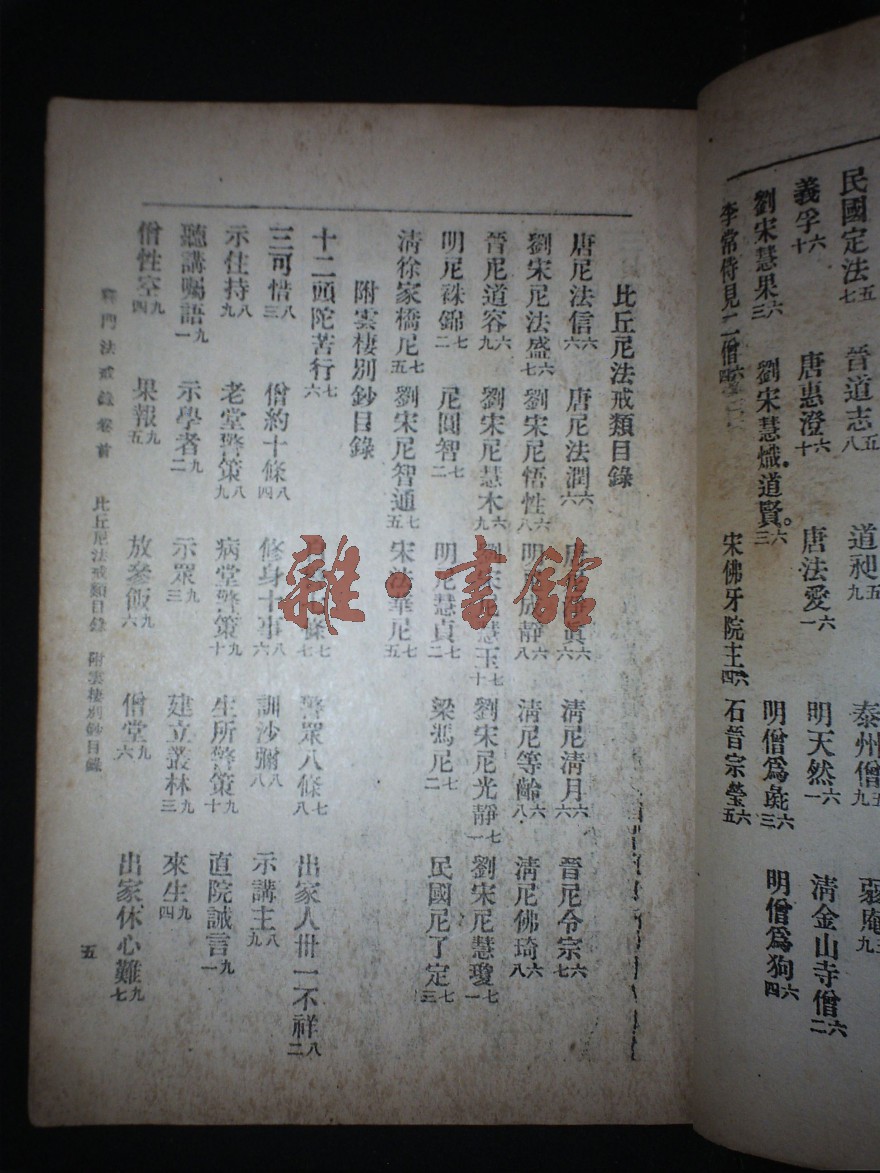 民國定法五七 晉道志五八 道昶五九 泰州僧五九
義孚六十 唐惠澄六十 唐法愛六一 明天然六一 清金山寺僧六二
劉宋慧果六三 劉宋慧熾道賢。六三 明僧為六三 明僧為狗六四
李常侍見二僧六四 宋佛牙院主六四 石晉宗瑩六五
比丘尼法戒類目錄
唐尼法信六六 唐尼法潤六六 六六 清尼清月六六 晉尼令宗六七
劉宋尼法盛六七 劉宋尼悟性六八 明尼成靜六八 清尼等齡六八 清尼佛琦六八
晉尼道容六九 劉宋尼慧木六九 劉宋尼慧玉七十 劉宋尼光靜七一 劉宋尼慧瓊七一
明尼袾錦七二 尼圓智七二 明尼慧貞七二 梁馮尼七二 民國尼了定七三
清徐家橋尼七五 劉宋尼智通七五 宋法華尼七五
附雲棲別鈔目錄
十二頭陀苦行七六 條七七 警眾八條七八 出家人卅一不祥八二
三可惜八三 僧約十條八四 修身十事八六 訓沙彌八八 示講主八九
示住持八九 老堂警策八九 病堂警策九十 生所警策九十 直院誡言九一
聽講囑語九一 示學者九二 示眾九三 建立叢林九三 來生九四
僧性空九四 果報九五 放參飯九六 僧堂九六 出家休心難九七
釋門法戒錄 卷首 比丘尼法戒類目錄 附雲棲別鈔目錄 五
雜·書館